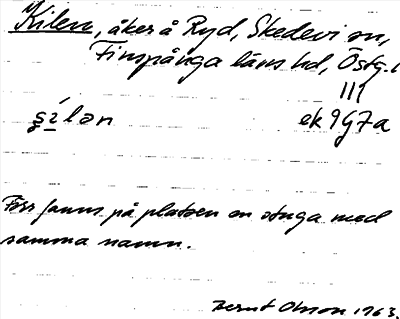 Kilen, åker å Ryd, Skedevi sn,
Finspånga läns hd, Östg. l
III
ʂílən ek 9G7a
Förr fanns på platsen en stuga med
samma namn.
Bernt Olsson 1963.